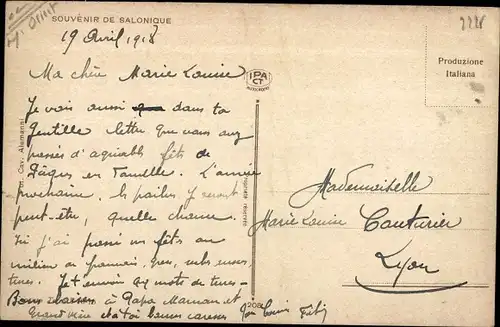 SOUVENIR DE SALONIQUE
19 Avril, 1918
Ma chère Marie Louise
Je vois aussi dans ta
gentille lettre que vous avez
passés d'agréables fêtes de
Pâques en famille. L'année
prochaine, les poilus y seront
peut-être, quelle chance.
Ici j'ai passé les fêtes au
milieu de français,
Bons baisers à Papa Maman et
Grand mère et à toi bonnes caresses
IPA
CT
Produzione
Italiana
Mademoiselle
Marie Louise Couturier
Lyon
Cav. Alemanni